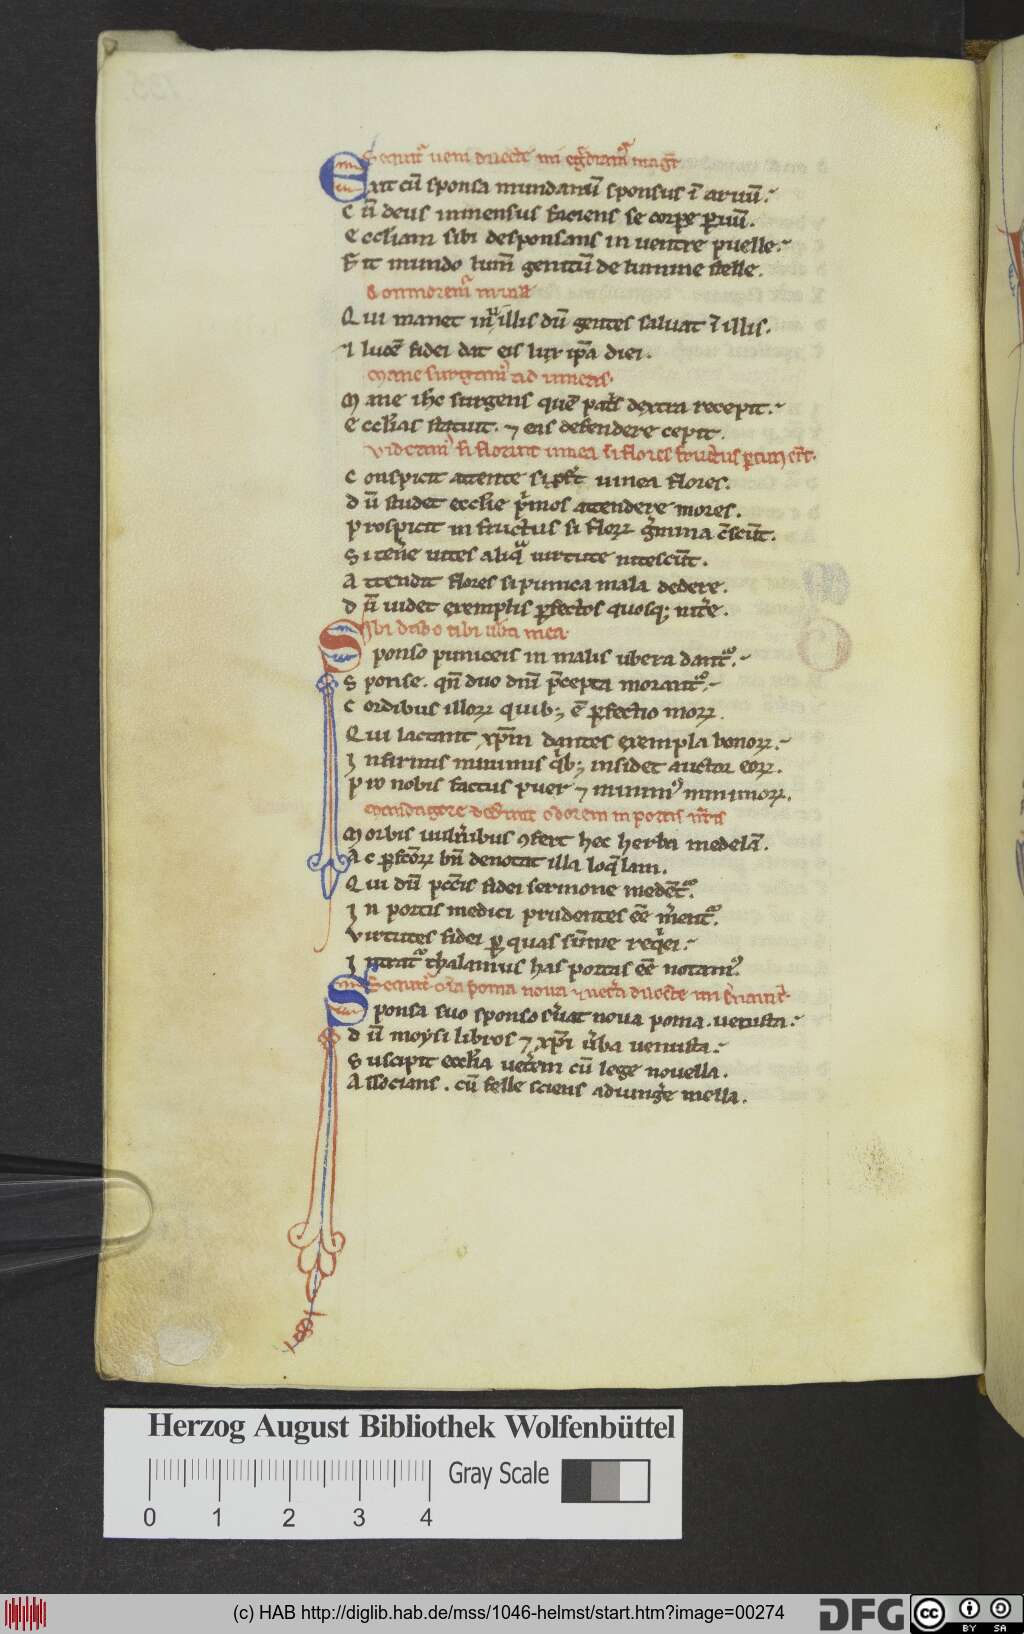 Sequit᷑ veni dilecte mi eg̃diam᷑ in ag̃r
Exit cũ sponsa mundanũ sponsus ĩ aruũ.
Cũ deus inmensus faciens se corpe ꝑuũ.
Eccl̃iam sibi desponsans in uentre puelle.
Fit mundo lum̃ genitũ de lumine stelle.
Conmorem᷑ in uill
Qui manet in᷑ illis dũ gentes saluat ⁊ illis.
⁊ lucẽ fidei dat eis lux ip̃a diei.
Mane surgam᷒ ad uineas.
Mane ihc̃ surgens quẽ pat̃s dextra recepit.
Eccl̃ias statuit. ⁊ eas defendere cepit.
Videam᷒ si floruit uinea si flores fruct᷒us ꝑturiẽt.
Conspicit attente si ꝓfert uinea flores.
Dũ studet eccl̃ie p̃mos attendere mores.
Prospicit in fructus si floꝝ g̃mina c̃scũt.
Si teñe uites aliq̃ uirtute nitescũt.
Attendit flores si punica mala dedere.
Dũ uidet exemplis ꝑfectos quosq; nit̃e.
Ibi dabo tibi ub̃a mea.
Sponso puniceis in malis ubera dant᷑.
Sponse. qñ duo dñi p̃cepta morant᷑.
Cordibus illoꝝ quib; ẽ ꝑfectio moꝝ.
Qui lactant xp̃m dantes exempla bonoꝝ.
Infirmis minimis q̃b; insidet auctor eoꝝ.
Pro nobis factus puer ⁊ minim᷒ minimoꝝ.
Mandragore dederunt odorem in portis nr̃is
Morbis uuln̾ibus ꝯfert hec herba medelã.
Ac ꝑfc̃oꝝ bñ denotat illa loq̃lam.
Qui dũ pcc̃is fidei sermone medẽt᷑.
In portis medici prudentes eẽ m̃ent᷑.
Virtutes fidei ꝑ quas sũme req̃ei.
Intrat᷑ thalamus has portas eẽ notam᷒.
Sequit᷑ om̃ia poma noua ⁊ uet̃a dilecte mi s̃uaui t̃.
Sponsa suo sponso s̃uat noua poma. uetusta.
Dũ moysi libros ⁊ xp̃i ũba uenusta.
Suscipit eccl̃ia uet̃em cũ lege nouella.
Associans. cũ felle sciens adiung̃e mella.
Herzog August Bibliothek Wolfenbüttel
Gray Scale
0 1 2 3 4
(c) HAB http://diglib.hab.de/mss/1046-helmst/start.htm?image=00274
DFG
cc BY SA